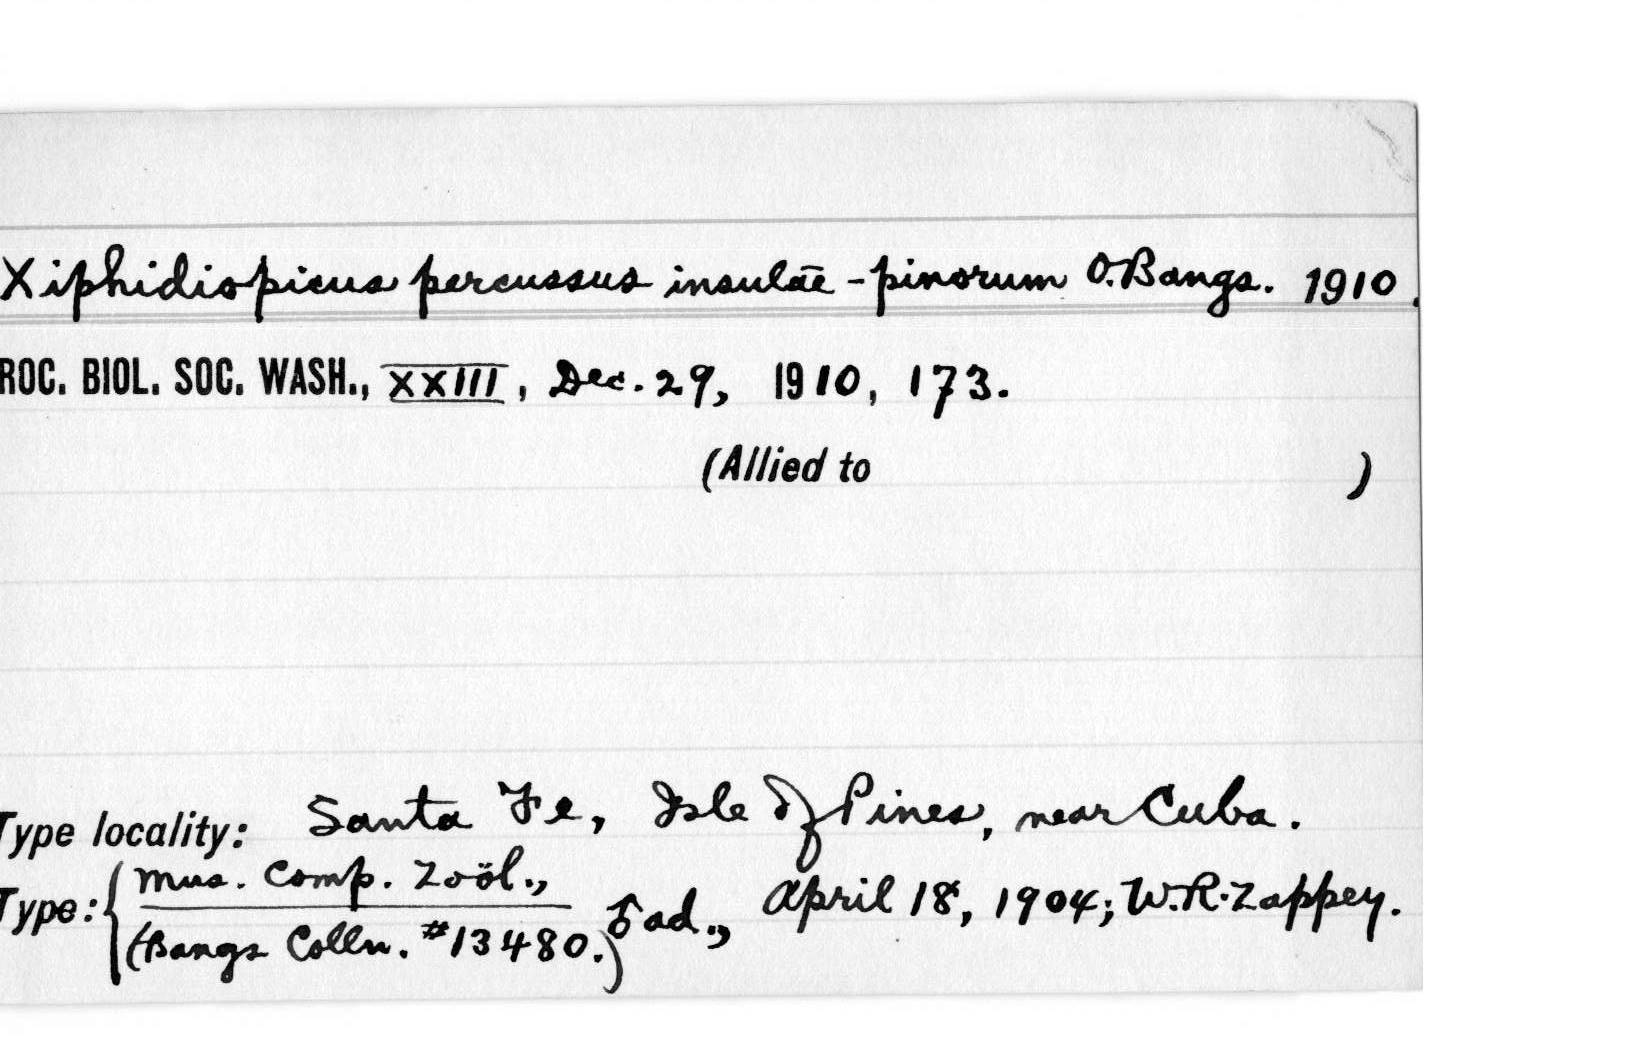 Xiphidiopicus percussus insulae-pinorum O. Bangs. 1910.
ROC. BIOL. SOC. WASH., XXIII, Dec. 29, 1910, 173.
(Allied to )
Type locality: Santa Fe, Isle of Pines, near Cuba.
Type: { Mus. Comp. Zoöl.,
(Bangs Colln. #13480.) ♂ ad., April 18, 1904; W.R. Zappey.